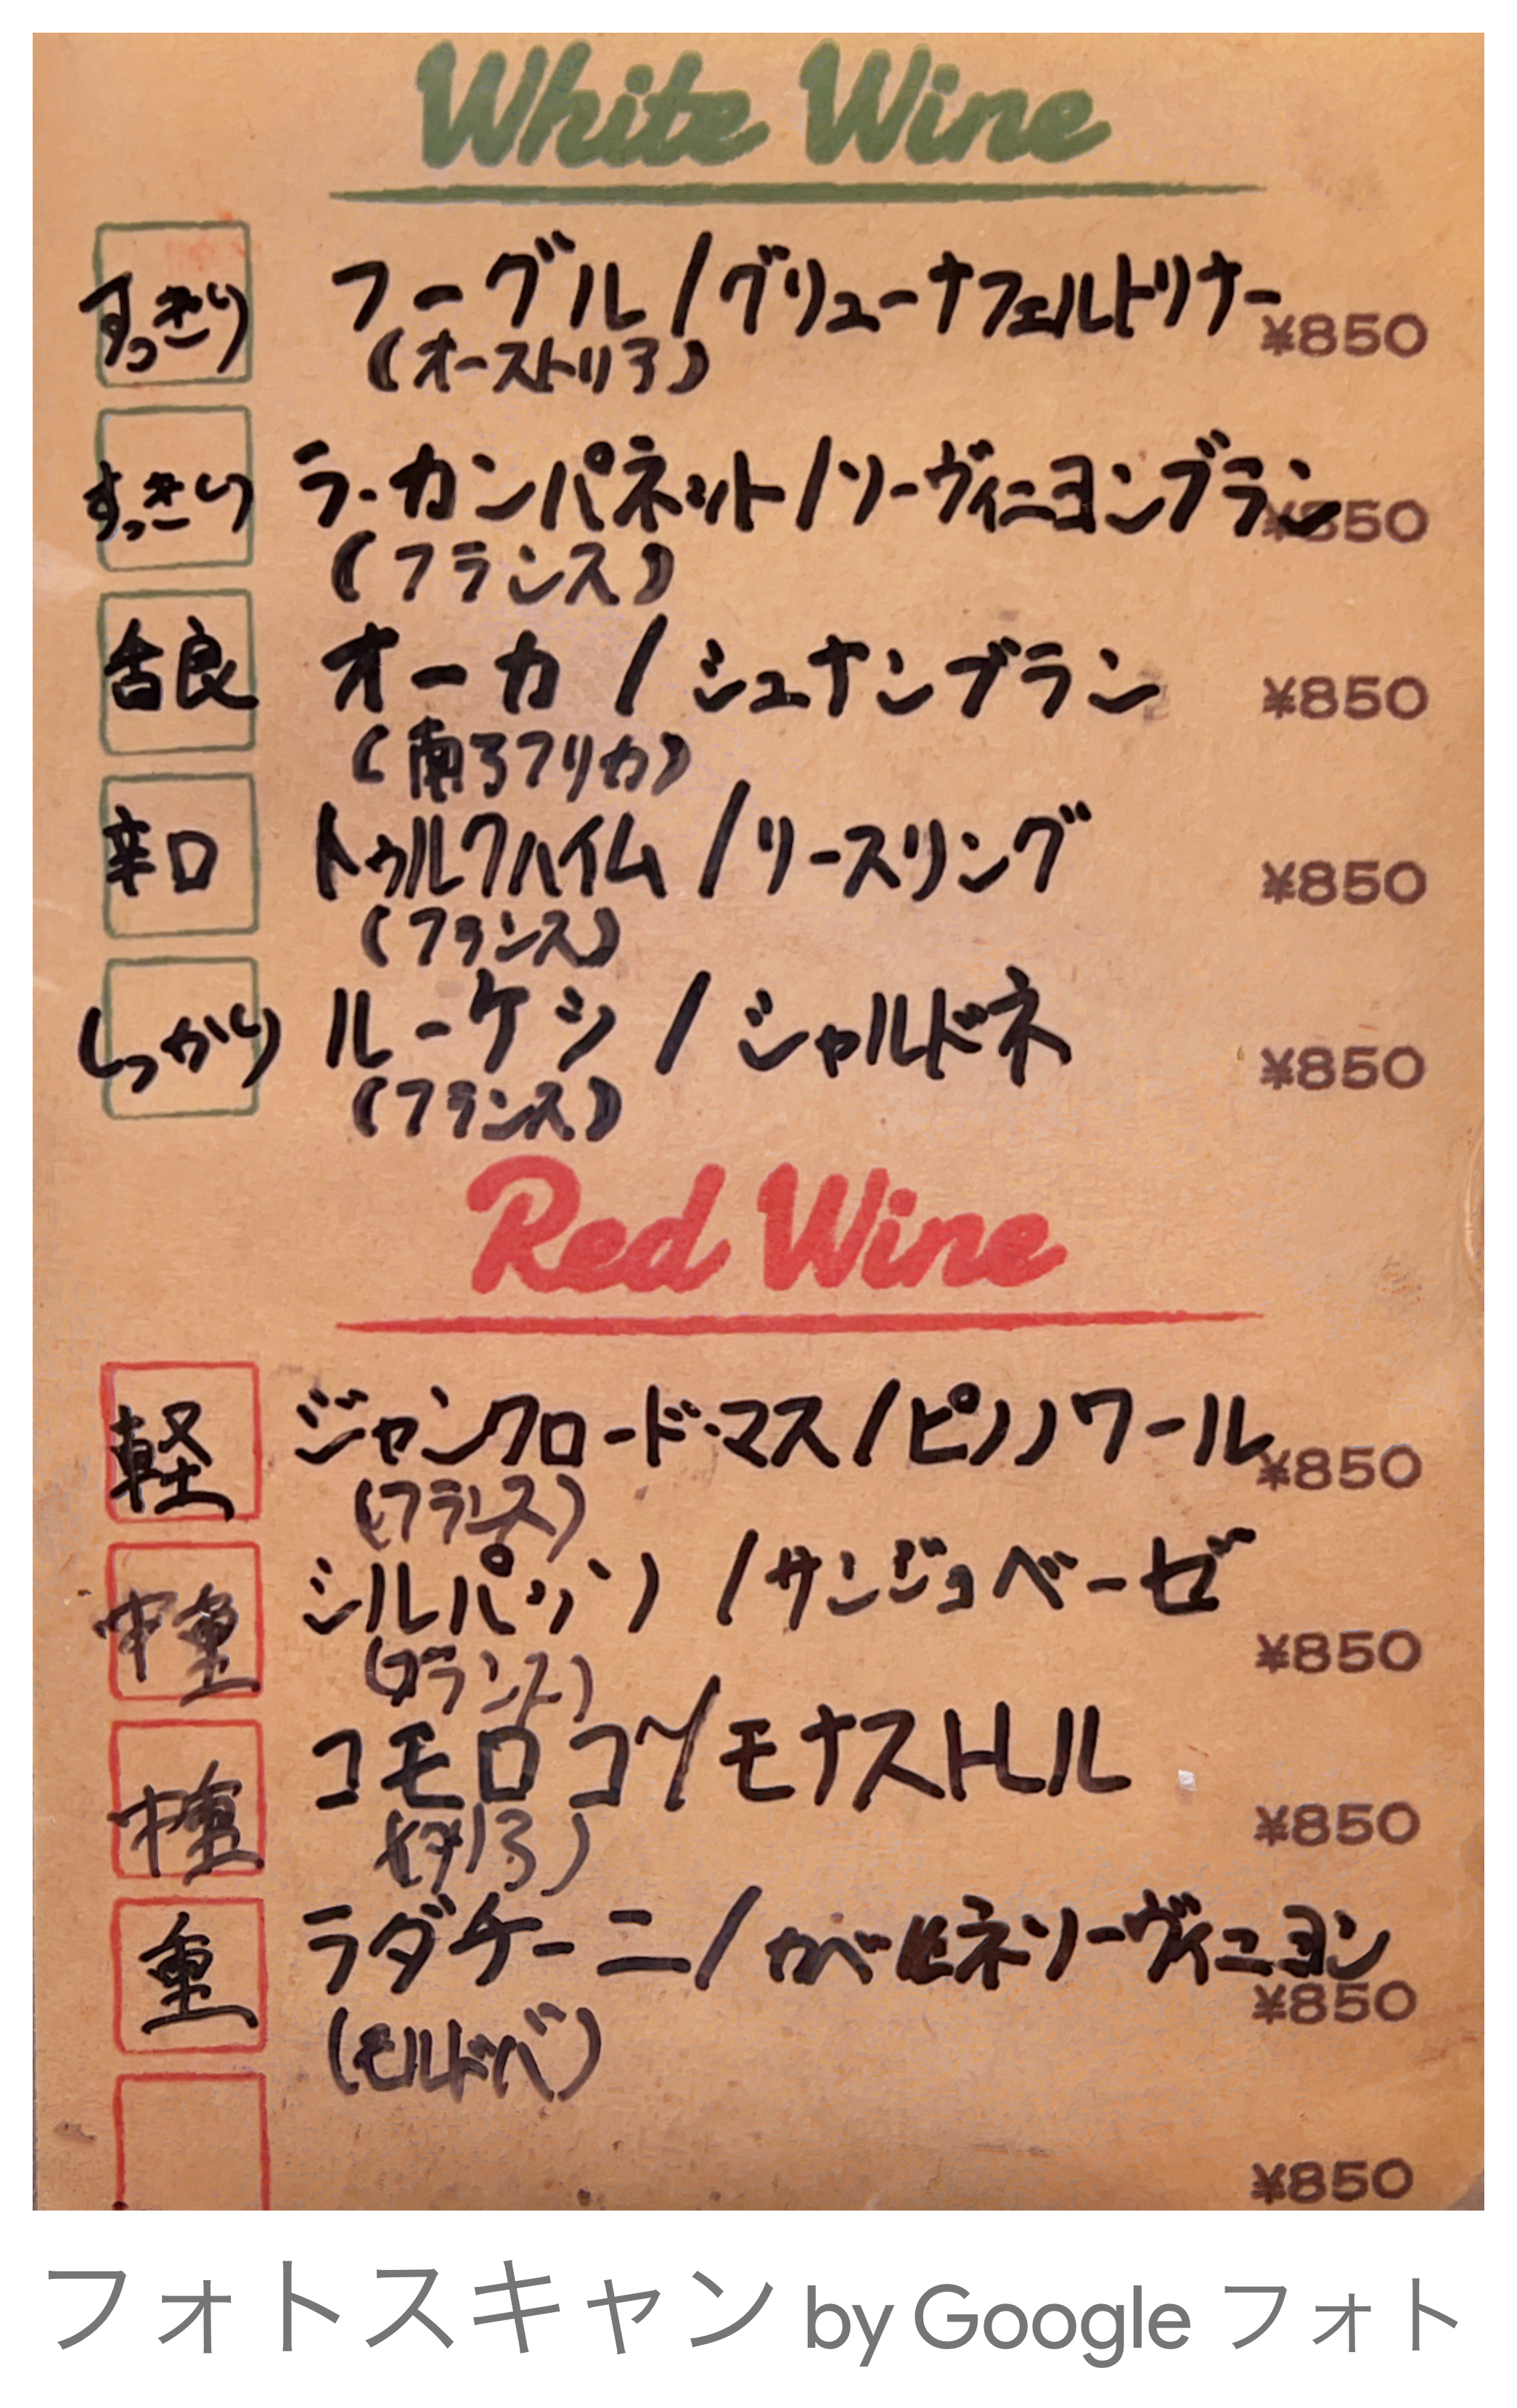 White Wine
すっきり フーグル/グリューナフェルトリナー ¥850
(オーストリア)
すっきり ラ・カンパネット/ソーヴィニヨンブラン ¥850
(フランス)
オーカ/シュナンブラン ¥850
(南アフリカ)
辛口 トゥルクハイム/リースリング ¥850
(フランス)
しっかり ルーケシ/シャルドネ ¥850
(フランス)
Red Wine
軽 ジャンクロード・マス/ピノノワール ¥850
(フランス)
中重 シルパッソ/サンジョベーゼ ¥850
中重 コモロコ/モナストレル ¥850
重 ラダチーニ/カベルネソーヴィニヨン ¥850
(モルドバ)
¥850
フォトスキャン by Google フォト